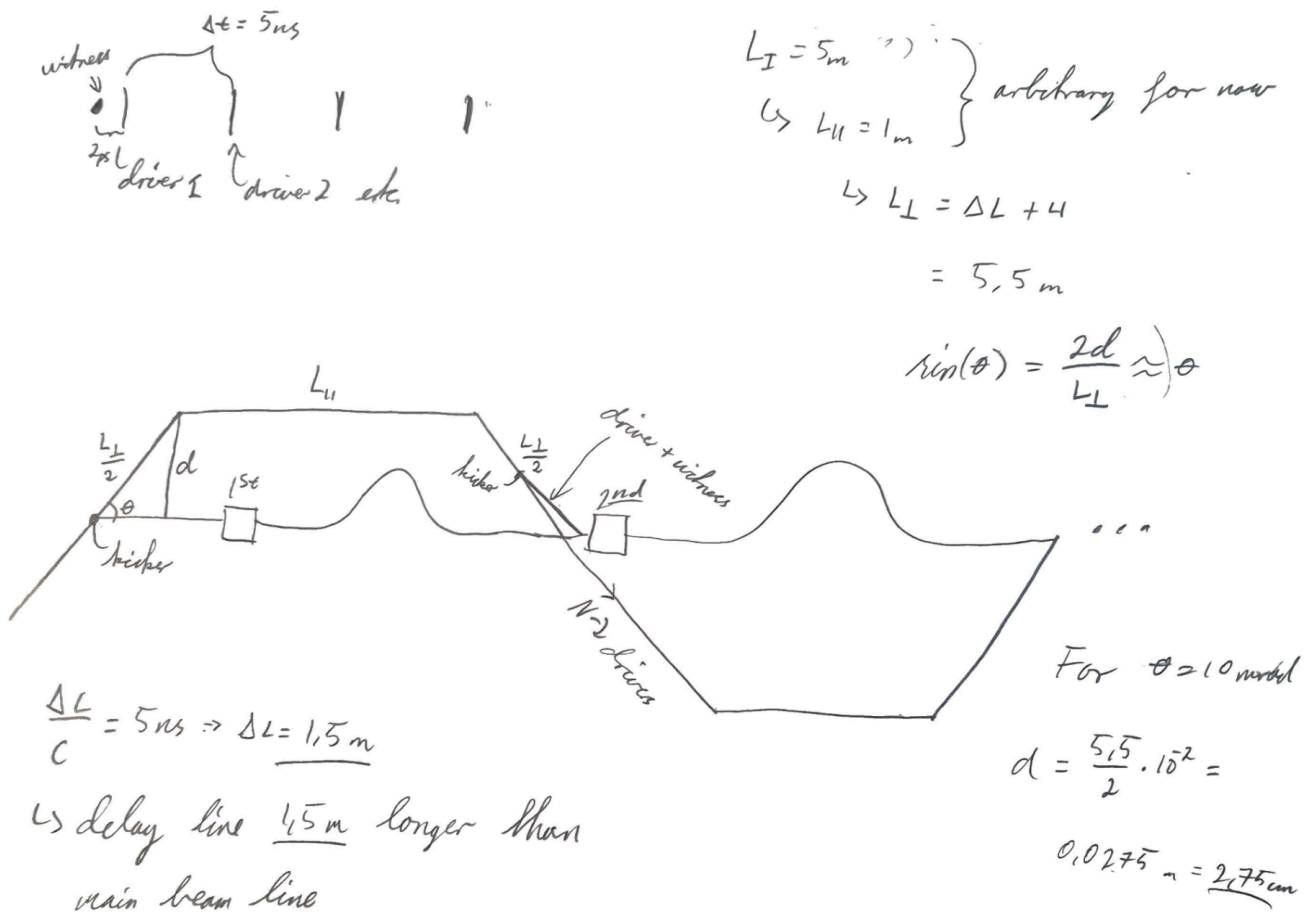 Δt = 5ns
witness
2ps
driver 1
driver 2 etc.
L_I = 5m
↳ L_∥ = 1m
} arbitrary for now
↳ L_⊥ = ΔL + 4
= 5,5 m
sin(θ) = 2d/L_⊥ ≈ θ
L_∥
L_⊥/2
d
θ
kicker
1st
kicker
L_⊥/2
driver + witness
2nd
...
N-2 drivers
ΔL/C = 5ns ⇒ ΔL = 1,5 m
↳ delay line 1,5 m longer than
main beam line
For θ = 10 mrad
d = 5,5/2 · 10^-2 =
0,0275 m = 2,75 cm